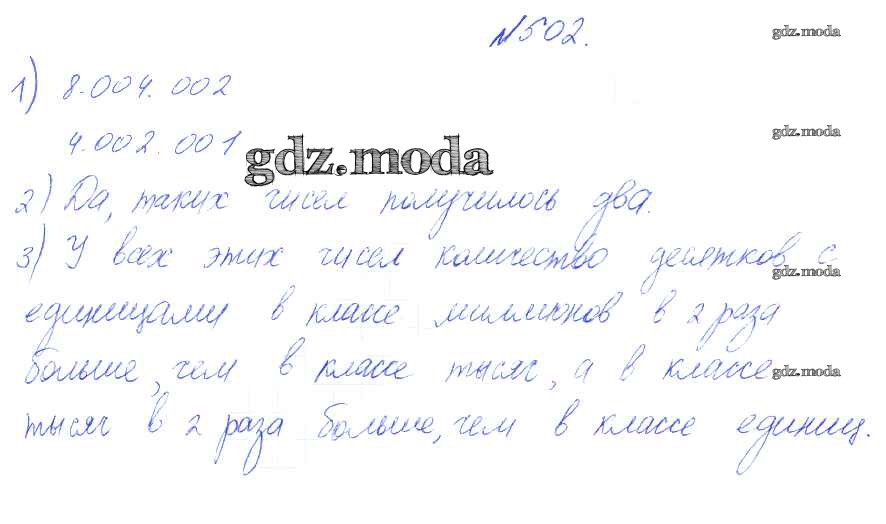 №502.
gdz.moda
1) 8.004.002
4.002.001
gdz.moda
gdz.moda
2) Да, таких чисел получилось два.
3) У всех этих чисел количество десятков с
gdz.moda
единицами в классе миллионов в 2 раза
больше, чем в классе тысяч, а в классе
gdz.moda
тысяч в 2 раза больше, чем в классе единиц.